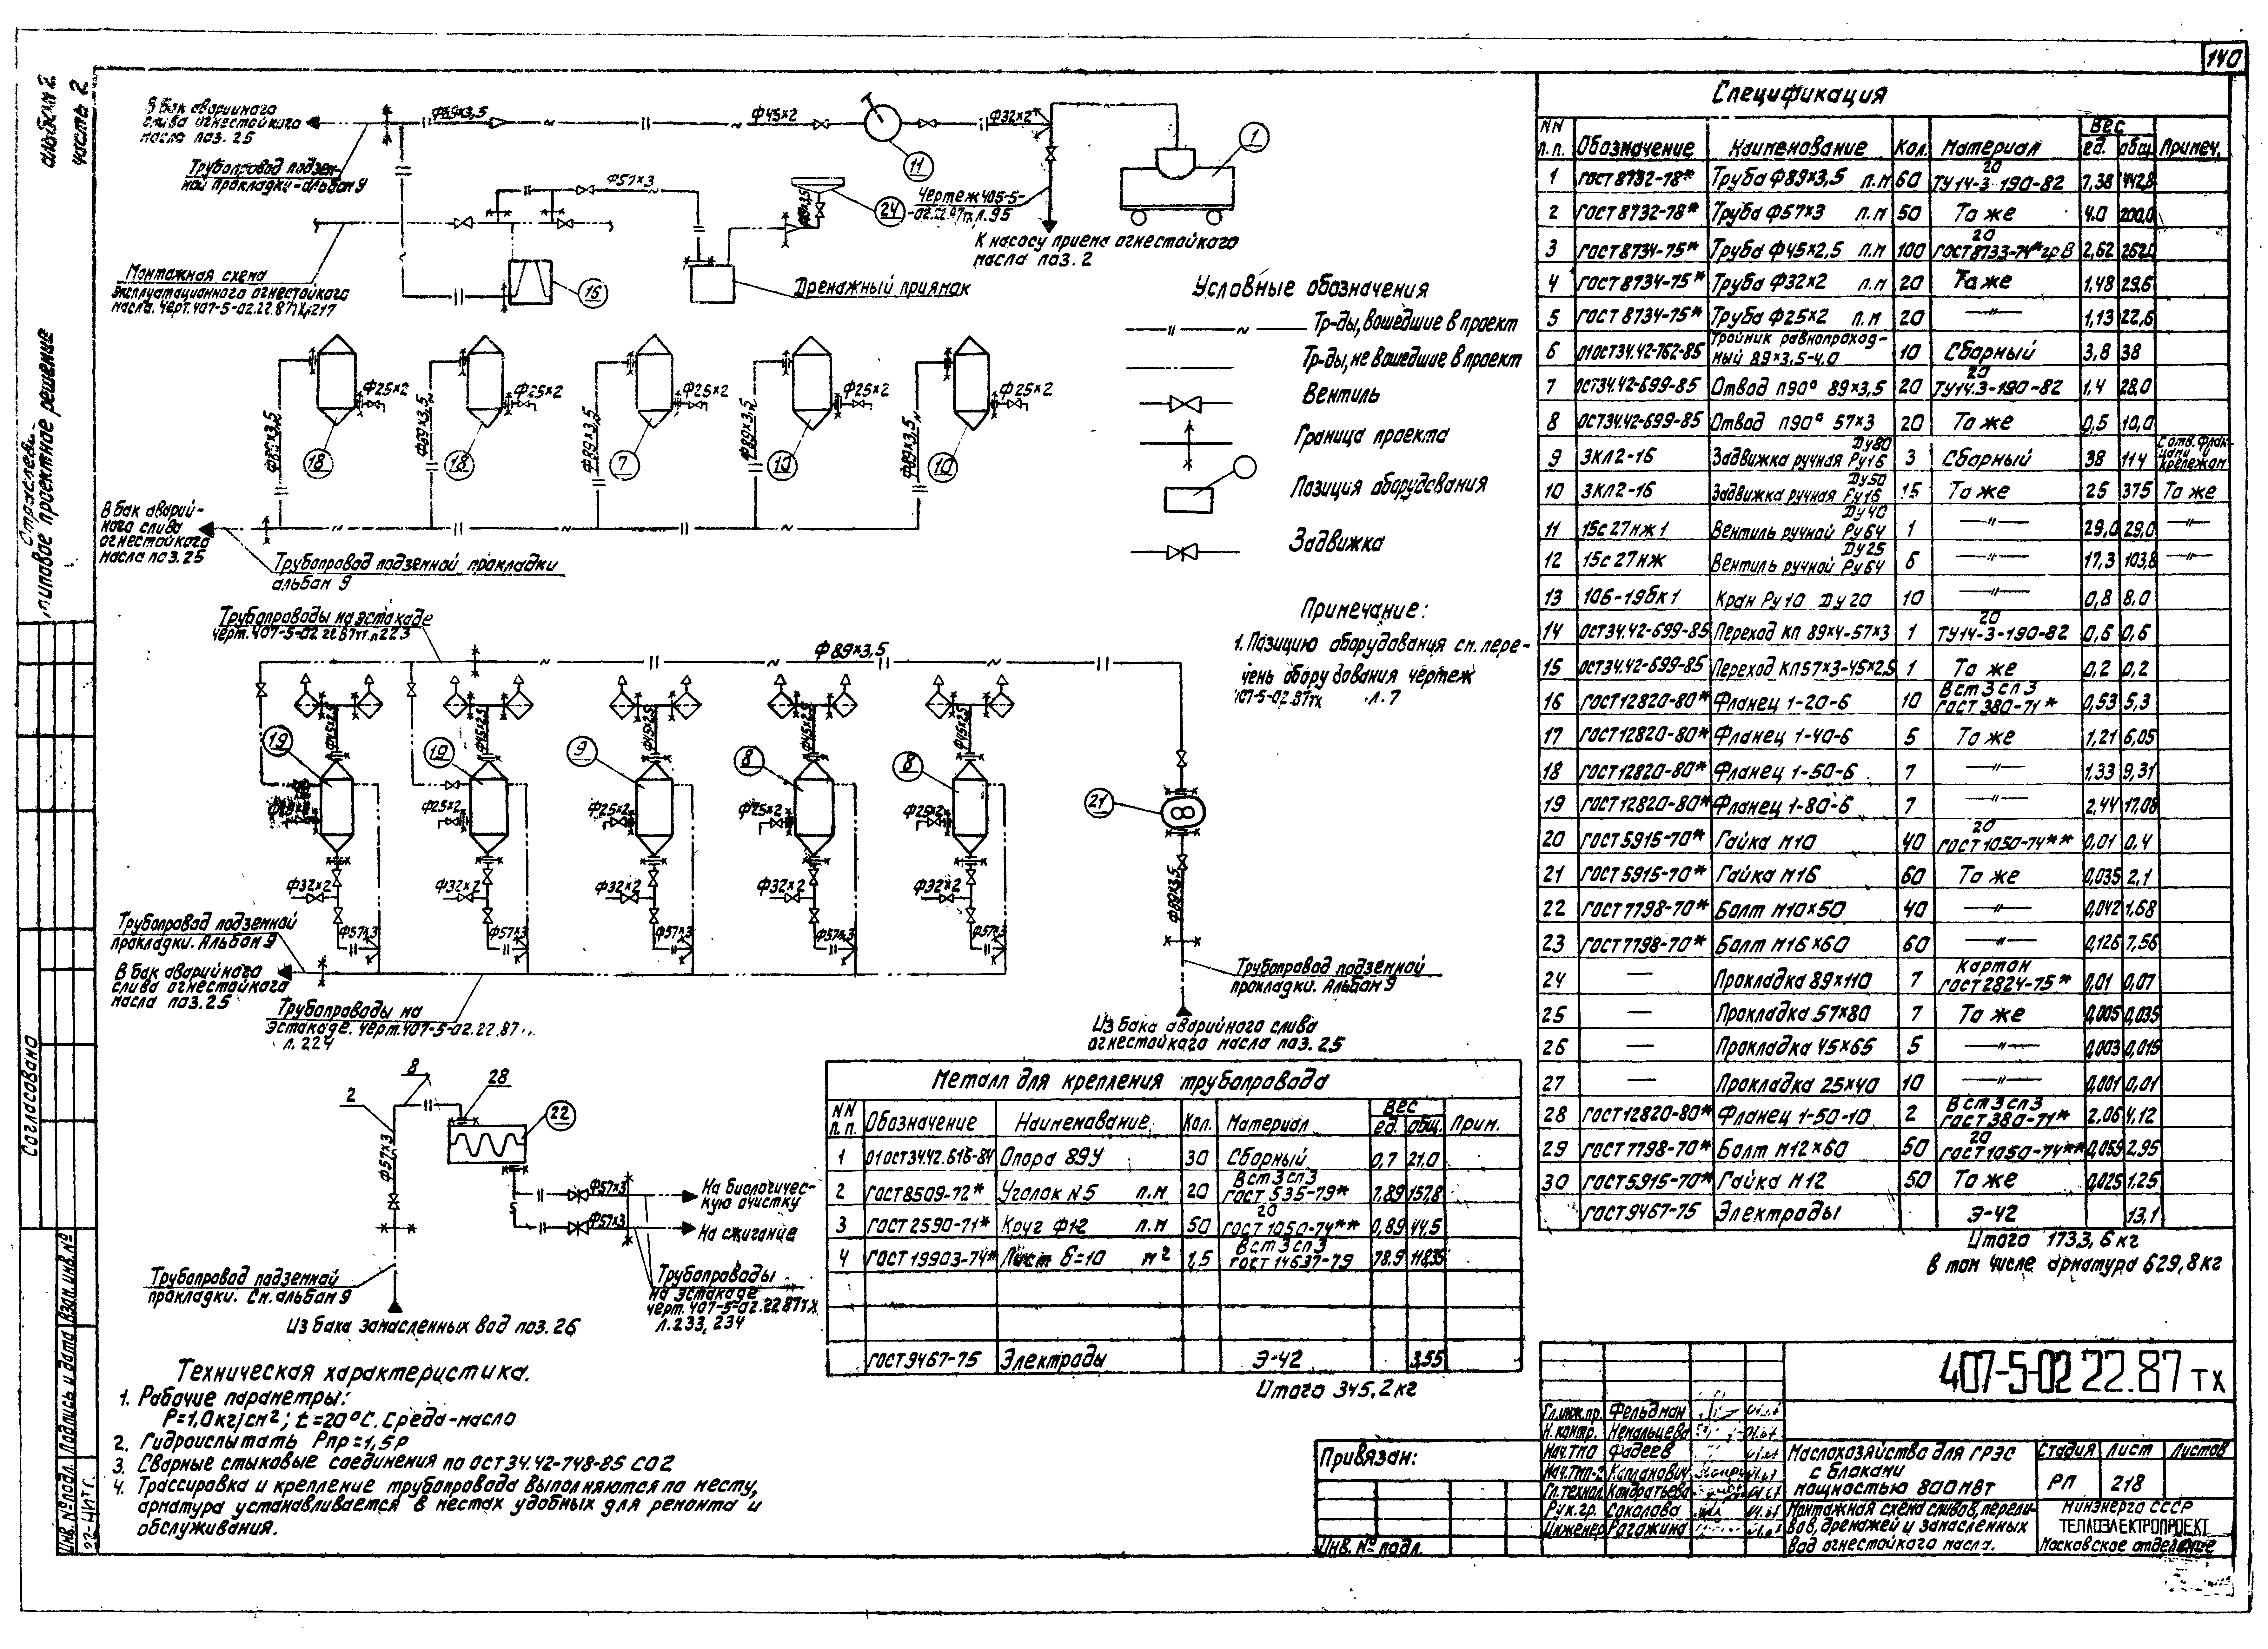 140
альбом 2
часть 2
типовое проектное решение
Согласовано
Взам. инв. №
Подпись и дата
Инв. № подл.
В бак аварийного
слива огнестойкого
масла поз. 25
Трубопровод подзем-
ной прокладки-альбом 9
Ф89×3,5
Ф45×2
Ф32×2
11
1
Ф57×3
24
Чертеж 405-5-
-02.22.87тх л.95
К насосу приема огнестойкого
масла поз. 2
Монтажная схема
эксплуатационного огнестойкого
масла. Черт. 407-5-02.22.87тх л.217
15
Дренажный приямок
Условные обозначения
Тр-ды, вошедшие в проект
Тр-ды, не вошедшие в проект
Вентиль
Граница проекта
Позиция оборудования
Задвижка
Ф89×3,5 Ф89×3,5 Ф89×3,5 Ф89×3,5 Ф89×3,5
Ф25×2 Ф25×2 Ф25×2 Ф25×2 Ф25×2
18 18 7 10 10
В бак аварий-
ного слива
огнестойкого
масла поз. 25
Трубопровод подземной прокладки
альбом 9
Примечание:
1. Позицию оборудования см. пере-
чень оборудования чертеж
407-5-02.87тх л. 7
Трубопроводы на эстакаде
Ф89×3,5
Ф45×2,5 Ф45×2,5 Ф45×2,5 Ф45×2,5 Ф45×2,5
19 19 9 8 8
21
Ф25×2 Ф25×2 Ф25×2 Ф25×2
Ф32×2 Ф32×2 Ф32×2 Ф32×2 Ф32×2
Ф57×3 Ф57×3 Ф57×3 Ф57×3 Ф57×3
Ф89×3,5
Трубопровод подземной
прокладки. Альбом 9
В бак аварийного
слива огнестойкого
масла поз. 25
Трубопроводы на
эстакаде. черт. 407-5-02.22.87
л. 224
Трубопровод подземной
прокладки. Альбом 9
Из бака аварийного слива
огнестойкого масла поз. 25
2
8
28
22
Ф57×3
Ф57×3
Ф57×3
На биологичес-
кую очистку
На сжигание
Трубопроводы
на эстакаде
черт. 407-5-02.22.87тх
л. 233, 234
Трубопровод подземной
прокладки. См. альбом 9
Из бака замасленных вод поз. 26
Техническая характеристика.
1. Рабочие параметры:
Р=1,0кг/см²; t=20°С. Среда-масло
2. Гидроиспытать Рпр=1,5Р
3. Сварные стыковые соединения по ОСТ 34.42-748-85 С02
4. Трассировка и крепление трубопровода выполняются по месту,
арматура устанавливается в местах удобных для ремонта и
обслуживания.
Металл для крепления трубопровода
NN п.п. Обозначение Наименование Кол. Материал Вес ед. общ. Прим.
1 01 ОСТ 34.42.616-84 Опора 89У 30 Сборный 0,7 21,0
2 ГОСТ 8509-72* Уголок N5 п.м 20 Вст3сп3 ГОСТ 535-79* 7,89 157,8
3 ГОСТ 2590-71* Круг Ф12 п.м 50 20 ГОСТ 1050-74** 0,89 44,5
4 ГОСТ 19903-74* Лист δ=10 м² 1,5 Вст3сп3 ГОСТ 14637-79 78,9 118,35
ГОСТ 9467-75 Электроды Э-42 3,55
Итого 345,2 кг
Спецификация
NN п.п. Обозначение Наименование Кол. Материал Вес ед. общ. Примеч.
1 ГОСТ 8732-78* Труба Ф89×3,5 п.м 60 20 ТУ14-3-190-82 7,38 442,8
2 ГОСТ 8732-78* Труба Ф57×3 п.м 50 То же 4.0 200,0
3 ГОСТ 8734-75* Труба Ф45×2,5 п.м 100 20 ГОСТ 8733-74* гр В 2,62 262,0
4 ГОСТ 8734-75* Труба Ф32×2 п.м 20 То же 1,48 29,6
5 ГОСТ 8734-75* Труба Ф25×2 п.м 20 —"— 1,13 22,6
6 01 ОСТ 34.42-762-85 Тройник равнопроход-ный 89×3,5-4.0 10 Сборный 3,8 38
7 ОСТ 34.42-699-85 Отвод П90° 89×3,5 20 20 ТУ14.3-190-82 1,4 28,0
8 ОСТ 34.42-699-85 Отвод П90° 57×3 20 То же 0,5 10,0
9 3КЛ2-16 Задвижка ручная Ду80 Ру16 3 Сборный 38 114 С отв. флан-цами и крепежом
10 3КЛ2-16 Задвижка ручная Ду50 Ру16 15 То же 25 375 То же
11 15с 27нж 1 Вентиль ручной Ду40 Ру64 1 —"— 29,0 29,0 —"—
12 15с 27нж Вентиль ручной Ду25 Ру64 6 —"— 17,3 103,8 —"—
13 10Б-19бк1 Кран Ру10 Ду20 10 —"— 0,8 8.0
14 ОСТ 34.42-699-85 Переход КП 89×4-57×3 1 20 ТУ14-3-190-82 0,6 0,6
15 ОСТ 34.42-699-85 Переход КП57×3-45×2,5 1 То же 0,2 0,2
16 ГОСТ 12820-80* Фланец 1-20-6 10 Вст3сп3 ГОСТ 380-71* 0,53 5,3
17 ГОСТ 12820-80* Фланец 1-40-6 5 То же 1,21 6,05
18 ГОСТ 12820-80* Фланец 1-50-6 7 —"— 1,33 9,31
19 ГОСТ 12820-80* Фланец 1-80-6 7 —"— 2,44 17,08
20 ГОСТ 5915-70* Гайка М10 40 20 ГОСТ 1050-74** 0,01 0,4
21 ГОСТ 5915-70* Гайка М16 60 То же 0,035 2,1
22 ГОСТ 7798-70* Болт М10×50 40 —"— 0,042 1,68
23 ГОСТ 7798-70* Болт М16×60 60 —"— 0,126 7,56
24 — Прокладка 89×110 7 Картон ГОСТ 2824-75* 0,01 0,07
25 — Прокладка 57×80 7 То же 0,005 0,035
26 — Прокладка 45×65 5 —"— 0,003 0,015
27 — Прокладка 25×40 10 —"— 0,001 0,01
28 ГОСТ 12820-80* Фланец 1-50-10 2 Вст3сп3 ГОСТ 380-71* 2.06 4,12
29 ГОСТ 7798-70* Болт М12×60 50 20 ГОСТ 1050-74** 0,059 2,95
30 ГОСТ 5915-70* Гайка М12 50 То же 0,025 1.25
ГОСТ 9467-75 Электроды Э-42 13,1
Итого 1733,6 кг
в том числе арматура 629,8 кг
407-5-02 22.87 ТХ
Гл.инж.пр. Фельдман
Н.контр. Немальцева
Нач.ТМО Фадеев
Нач.ТМП-2 Капланович
Гл.технол. Кондратьева
Рук.гр. Соколова
Инженер Рогожина
Маслохозяйство для ГРЭС
с блоками
мощностью 800МВт
Стадия Лист Листов
РП 218
Монтажная схема сливов, перели-
вов, дренажей и замасленных
вод огнестойкого масла.
МИНЭНЕРГО СССР
ТЕПЛОЭЛЕКТРОПРОЕКТ
Московское отделение
Привязан:
Инв. № подл.